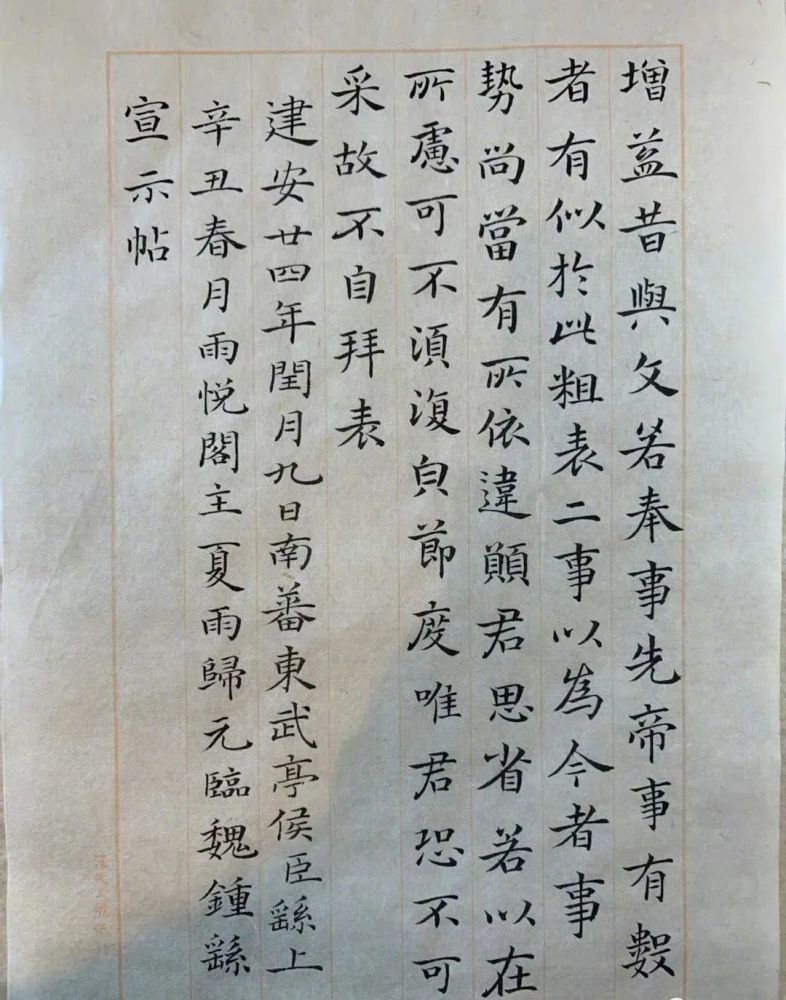 增益昔與文若奉事先帝事有數
者有似於此粗表二事以為今者事
勢尚當有所依違願君思省若以在
所慮可不須復皃節度唯君恐不可
采故不自拜表
建安廿四年閏月九日南蕃東武亭侯臣繇上
辛丑春月雨悅閣主夏雨歸元臨魏鍾繇
宣示帖